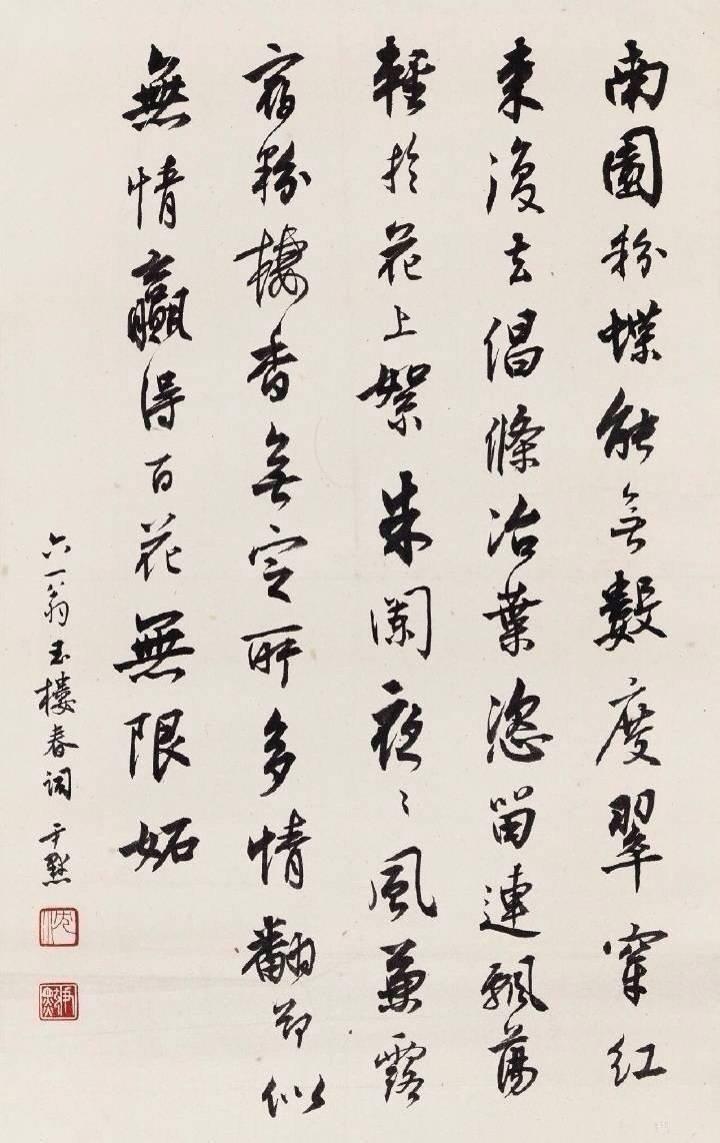 南園粉蝶能無數度翠穿紅
來復去倡條冶葉恣留連飄蕩
輕於花上絮朱闌夜〻風兼露
宿粉棲香無定所多情翻却似
無情贏得百花無限妬
六一翁玉樓春詞 尹默
沈
尹默